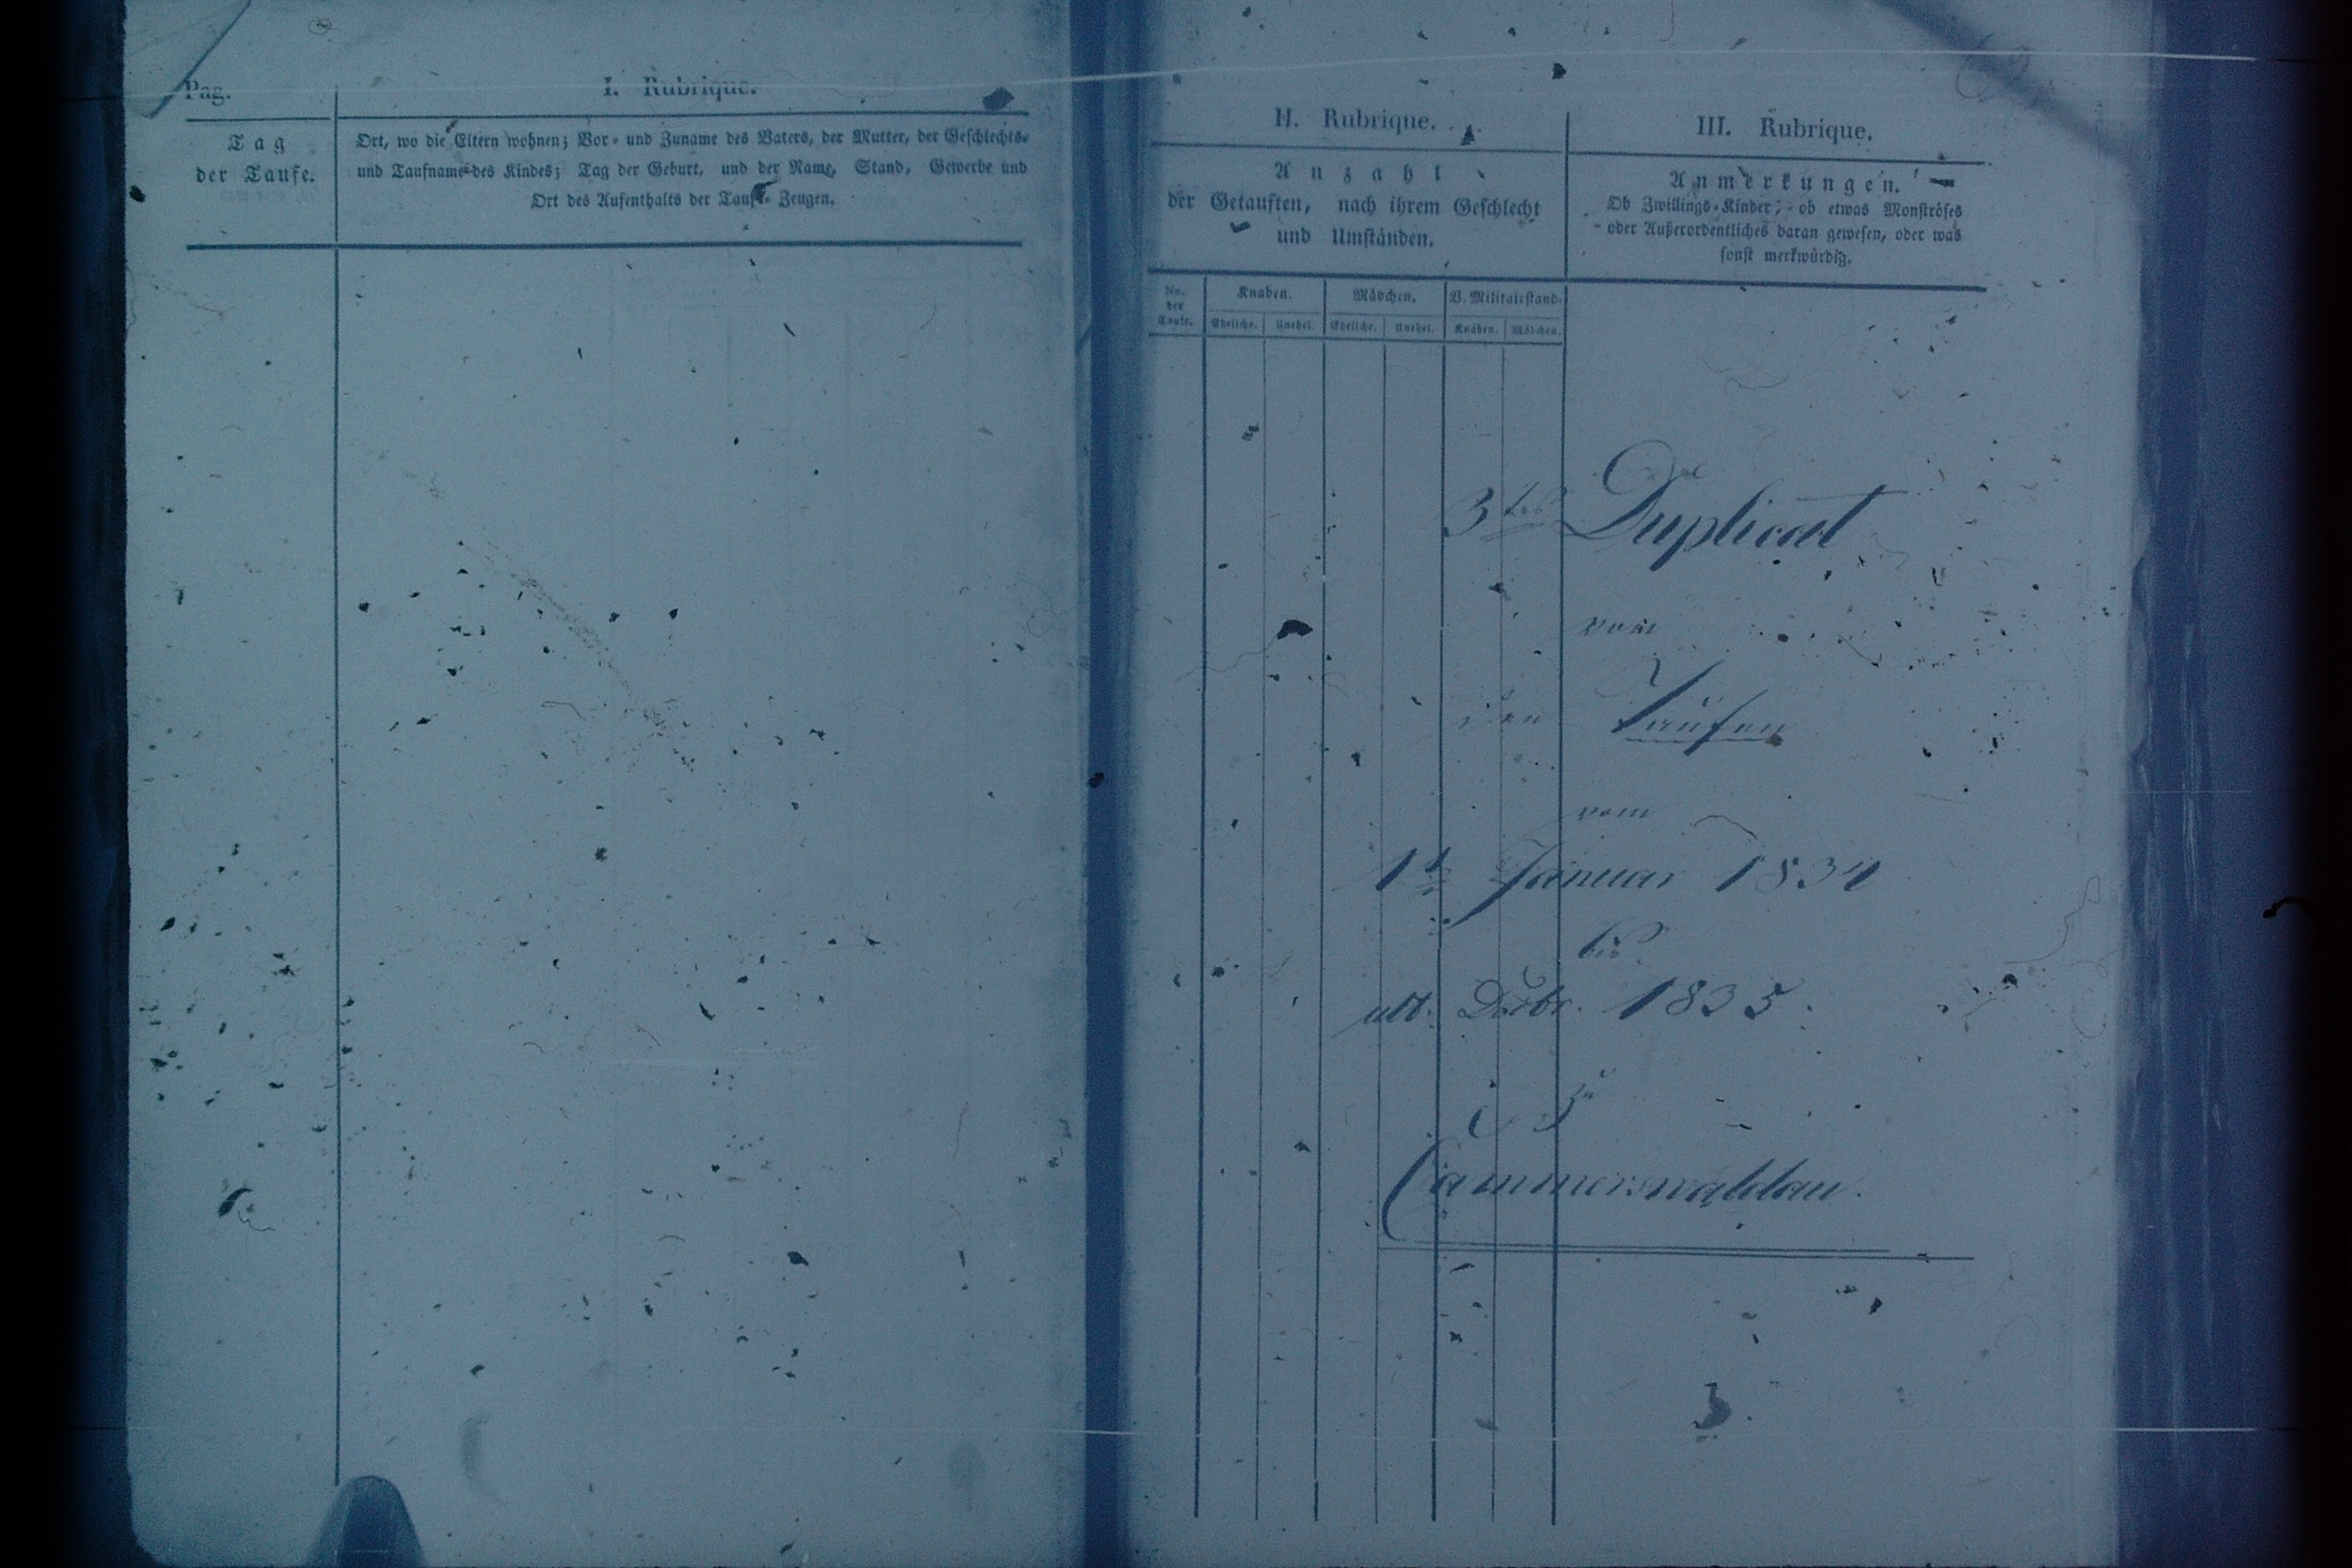 Pag.
I. Rubrique.
Tag
der Taufe.
Ort, wo die Eltern wohnen; Vor- und Zuname des Vaters, der Mutter, der Geschlechts-
und Taufname des Kindes; Tag der Geburt, und der Name, Stand, Gewerbe und
Ort des Aufenthalts der Tauf-Zeugen.
II. Rubrique.
Anzahl
der Getauften, nach ihrem Geschlecht
und Umständen.
No.
der
Taufe.
Knaben. Mädchen. V. Militairstand.
Eheliche. Unehel. Eheliche. Unehel. Knaben. Mädchen.
III. Rubrique.
Anmerkungen.
Ob Zwillings-Kinder; ob etwas Monströses
oder Außerordentliches daran gewesen, oder was
sonst merkwürdig.
3tes Duplicat
von
den Taufen
vom
1t Januar 1834
bis
ult. Decbr. 1835.
zu
Cammerswaldau.